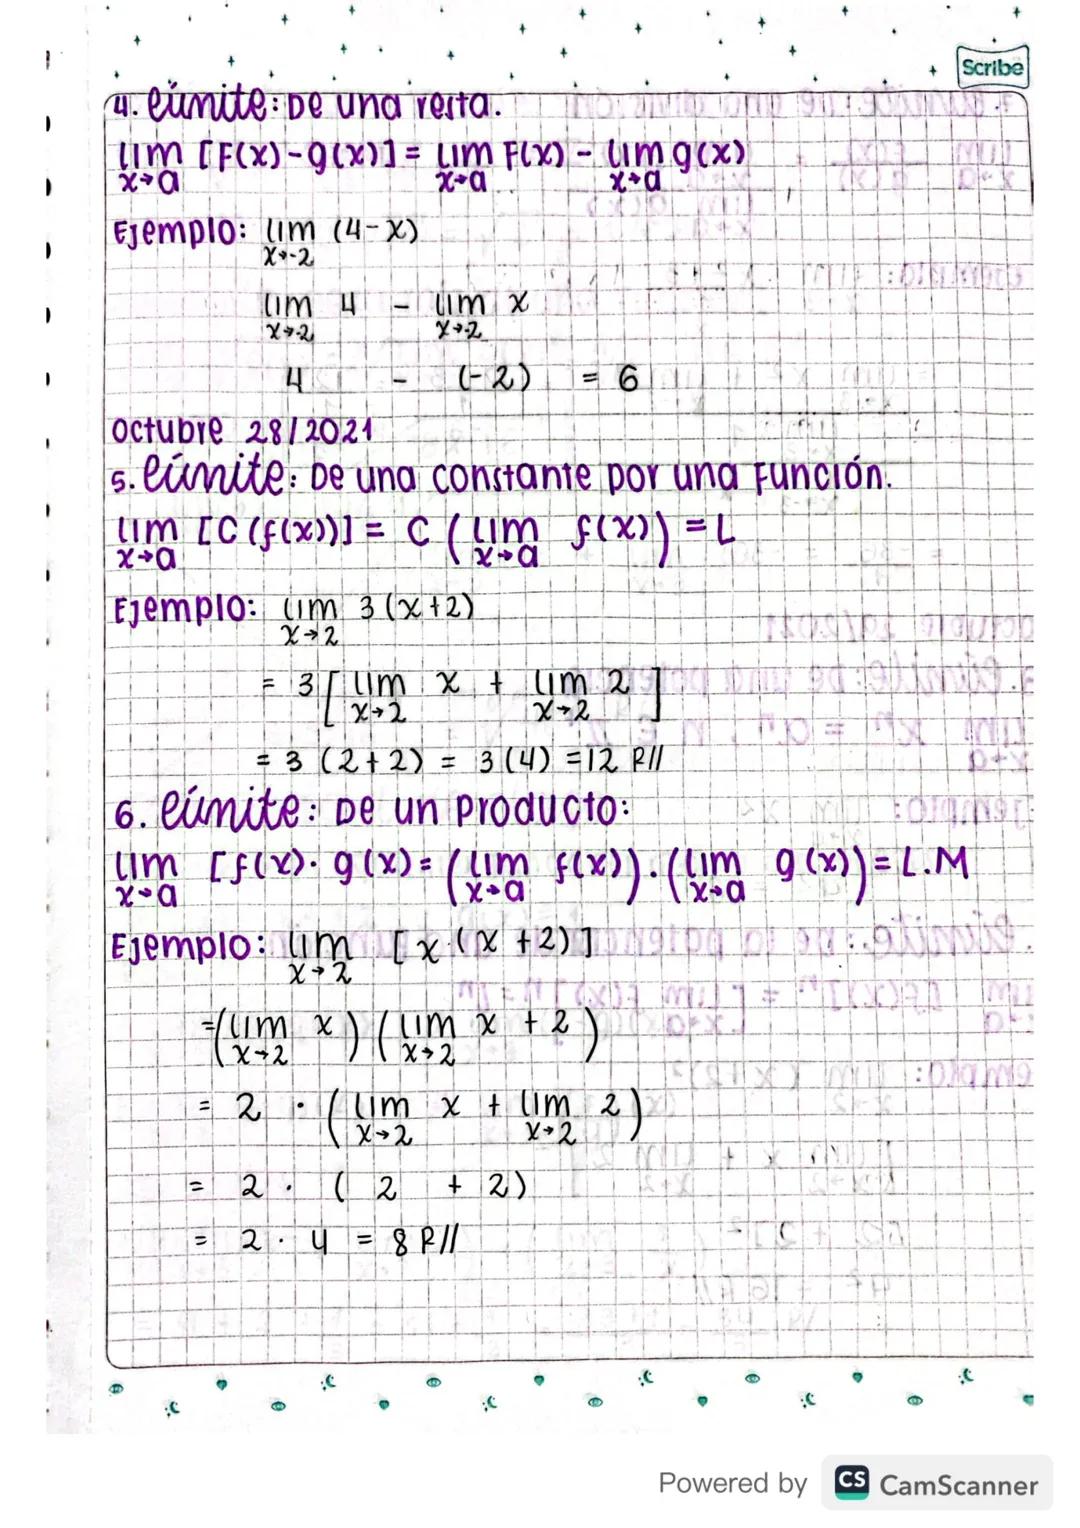 Scribe
4. Límite: De una resta.
lim [F(x)-g(x)] = lim F(x) - lim g(x)
x→a x→a x→a
Ejemplo: lim (4-x)
x→-2
lim 4 - lim x
x→-2 x→-2
4 - (-2) = 6
octubre 28/2021
5. Límite: De una constante por una Función.
lim [C(f(x))] = C (lim f(x)) = L
x→a x→a
Ejemplo: lim 3(x+2)
x→2
= 3 [lim x + lim 2]
x→2 x→2
= 3 (2+2) = 3(4) = 12 R//
6. Límite: De un Producto:
lim [f(x)· g(x) = (lim f(x)).(lim g(x)) = L.M
x→a x→a x→a
Ejemplo: lim [x·(x+2)]
x→2
=(lim x)(lim x + 2)
x→2 x→2
= 2 · (lim x + lim 2)
x→2 x→2
= 2 · (2 + 2)
= 2 · 4 = 8 R//
Powered by CS CamScanner